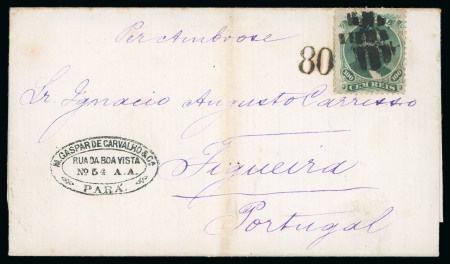 Per Ambrose
80
100 100
CEM REIS
Sr Ignacio Augusto Carrisso
M. GASPAR DE CARVALHO & Ca
RUA DA BOA VISTA
No 54 A.A.
PARÁ
Figueira
Portugal